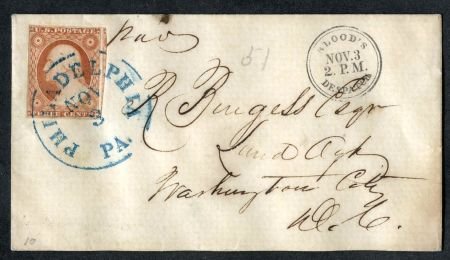 U.S. POSTAGE
THREE CENTS
PHILADELPHIA
NOV
3
PA.
BLOOD'S
NOV. 3
2. P.M.
DESPATCH
51
R Burgess Esqr
Land Agt
Washington City
D.C.
10